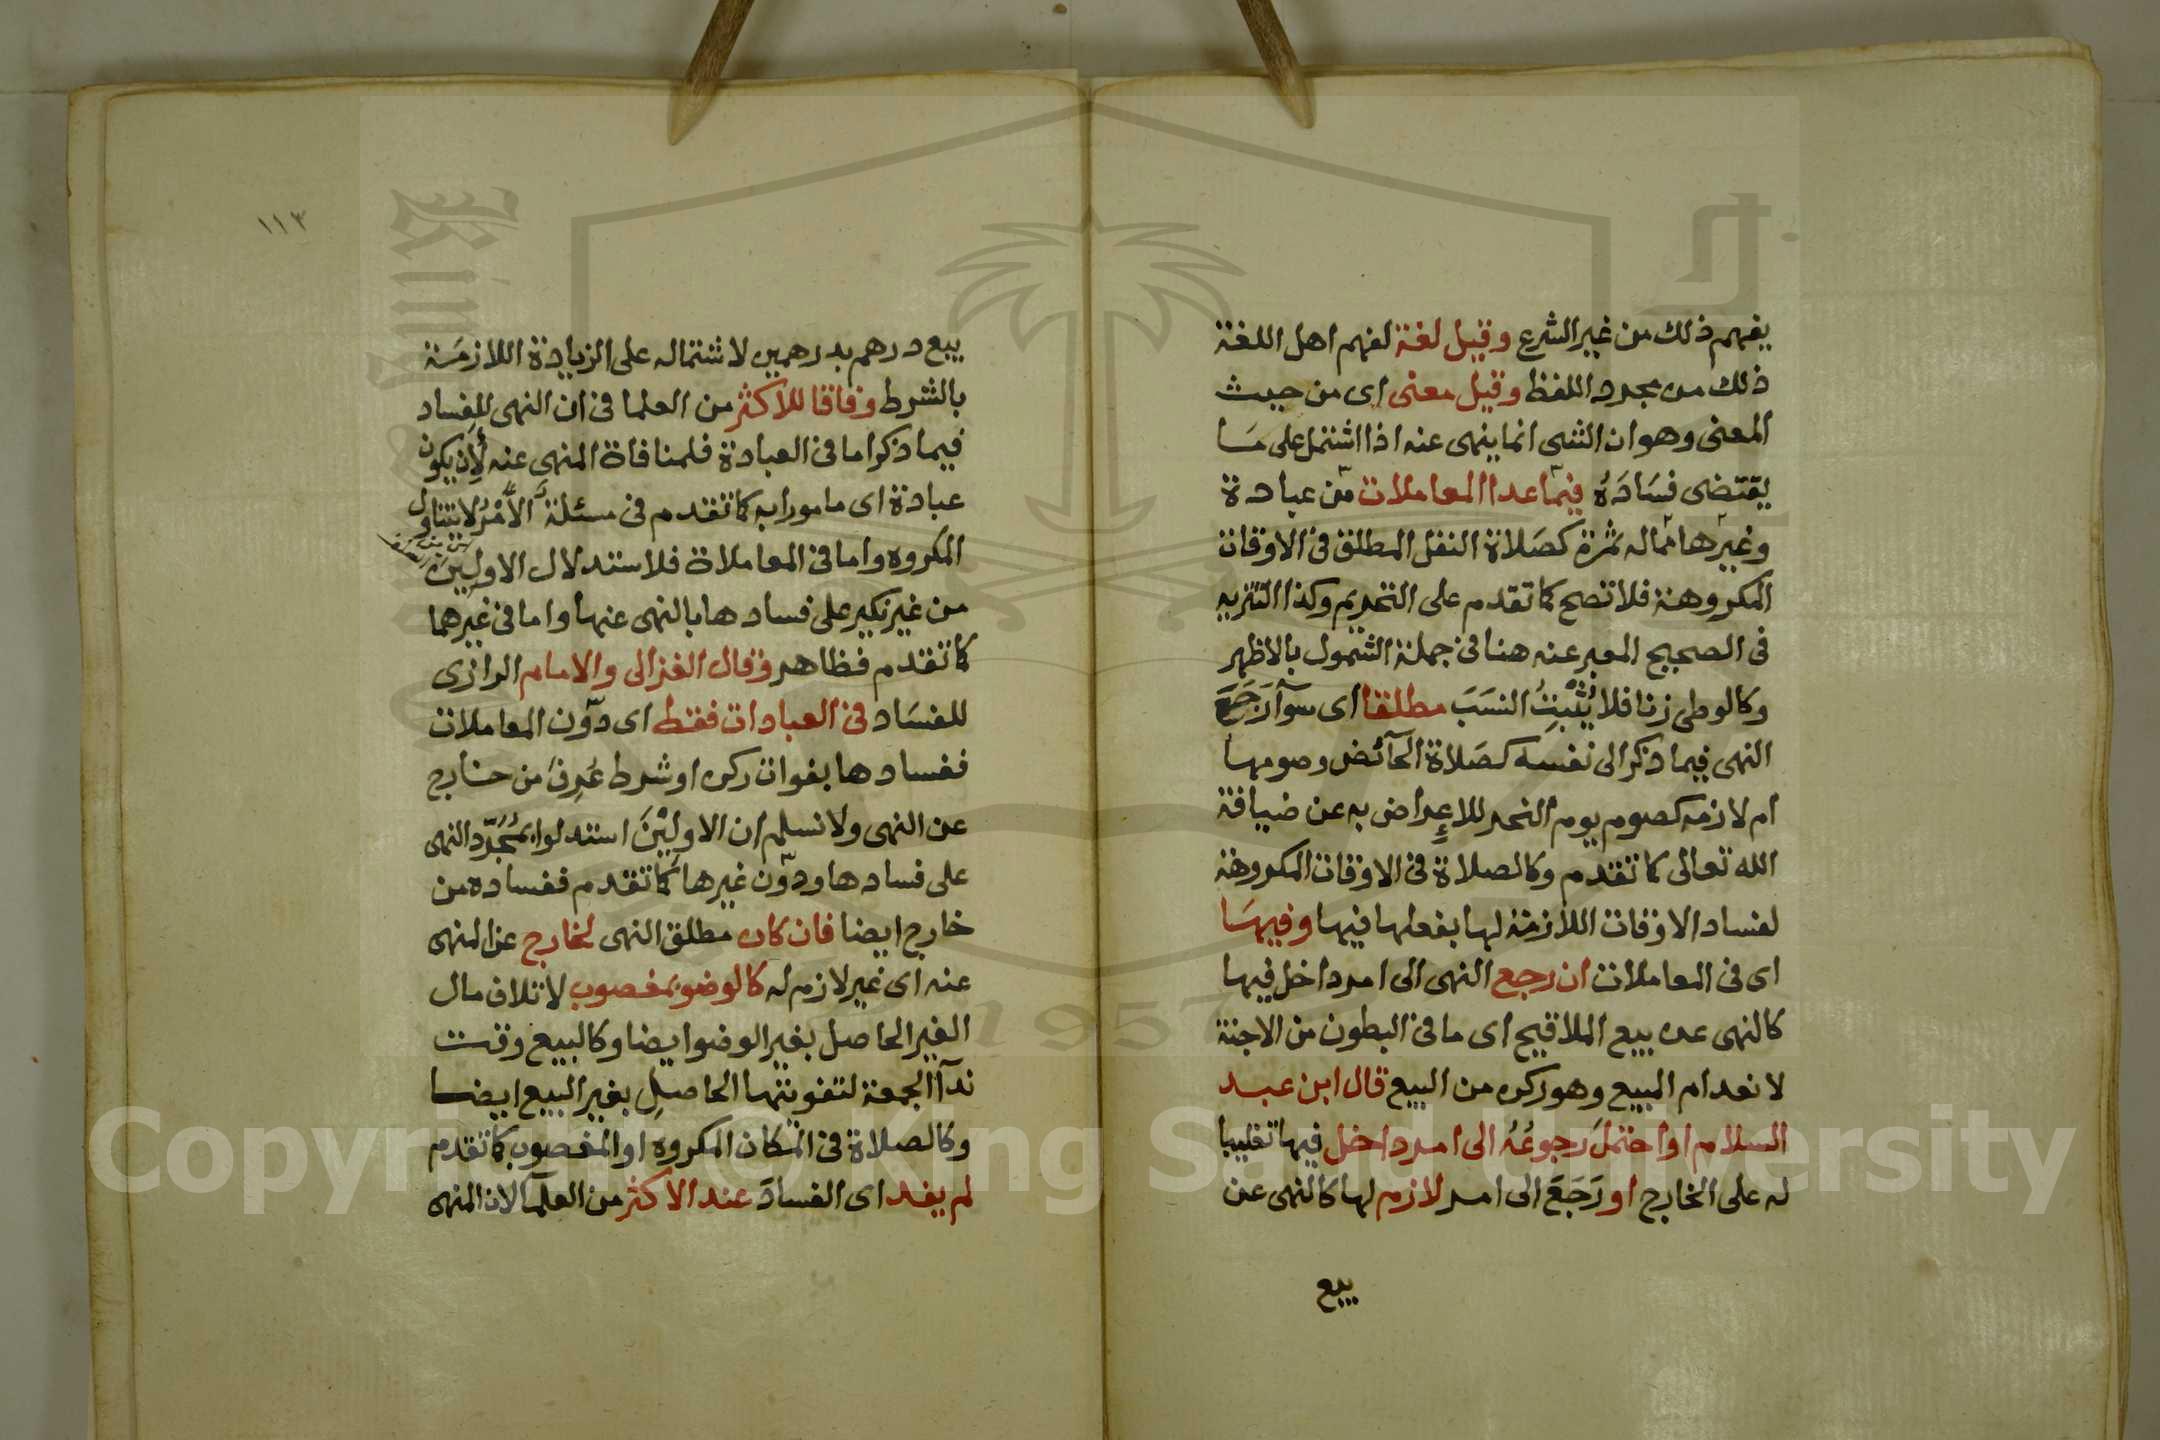 يفهم ذلك من غير الشرع وقيل لغة لفهم اهل اللغة
ذلك من مجرد اللفظ وقيل معنى اى من حيث
المعنى وهو ان الشى انما ينهى عنه اذا اشتمل على مَا
يقتضى فسَادَهُ فيما عدا المعاملات من عبادة
وغيرها مماله ثمرة كصَلاة النفل المطلق فى الاوقات
المكروهة فلا تصح كما تقدم على التحريم وكذا التنزيه
فى الصحيح المعبر عنه هنا فى جملة الشمول بالاظهر
وكالوطى زنا فلا يُثْبِتُ النسَبَ مطلقا اى سوآ رَجَعَ
النهى فيما ذكر الى نفسه كصَلاة الحآئض وصومها
ام لازمه كصوم يوم النحر للاعراض به عن ضيافة
الله تعالى كما تقدم وكالصلاة فى الاوقات المكروهة
لفساد الاوقات اللازمة لها بفعلها فيها وفيهَا
اى فى المعاملات ان رجع النهى الى امر داخل فيها
كالنهى عن بيع الملاقيح اى ما فى البطون من الاجنة
لانعدام المبيع وهو ركن من البيع قال ابن عبد
السلام او احتمَلَ رجوعُهُ الى امر داخل فيها تغليبا
له على الخارج او رَجَعَ الى امر لازم لها كالنهى عن
بيع
١١٣
بيع درهم بدرهمين لاشتماله على الزيادة اللازمَة
بالشرط وفاقا للاكثر من العلما فى ان النهى للفساد
فيما ذكر اما فى العبادة فلمنافاة المنهى عنه لأن يكون
عبادة اى مامورا به كما تقدم فى مسئلة الأمْرُ لا يتناول
المكروه واما فى المعاملاة فلاستدلال الاولين
من غير نكير على فسادها بالنهى عنها واما فى غيرهما
كما تقدم فظاهر وقال الغزالى والامام الرازى
للفسَاد فى العبادات فقط اى دون المعاملات
ففسادها بفوات ركن او شرط عُرِفَ من خارج
عن النهى ولا نسلم ان الاولِيْنَ استدلوا بمُجَرّد النهى
على فسادها ودون غيرها كما تقدم ففساده من
خارج ايضا فان كان مطلق النهى لخارج عن المنهى
عنه اى غير لازم له كالوضو بمغصوب لاتلاف مال
الغير الحاصل بغير الوضوا يضا وكالبيع وقت
ندآ الجمعة لتفويتها الحاصلِ بغير البيع ايضا
وكالصلاة فى المكان المكروه او المغصوب كما تقدم
لم يفد اى الفسادَ عند الاكثر من العلمآ لان المنهى